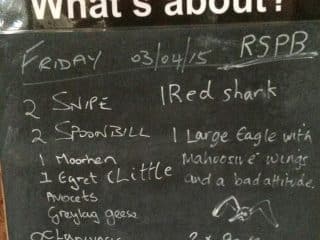 What's about?
FRIDAY 03/04/15 RSPB
2 SNIPE
2 SPOONBILL
1 Moorhen
1 Egret (Little
Avocets
Greylag geese
1 Red shank
1 Large Eagle with
Mahoosive wings
and a bad attitude.